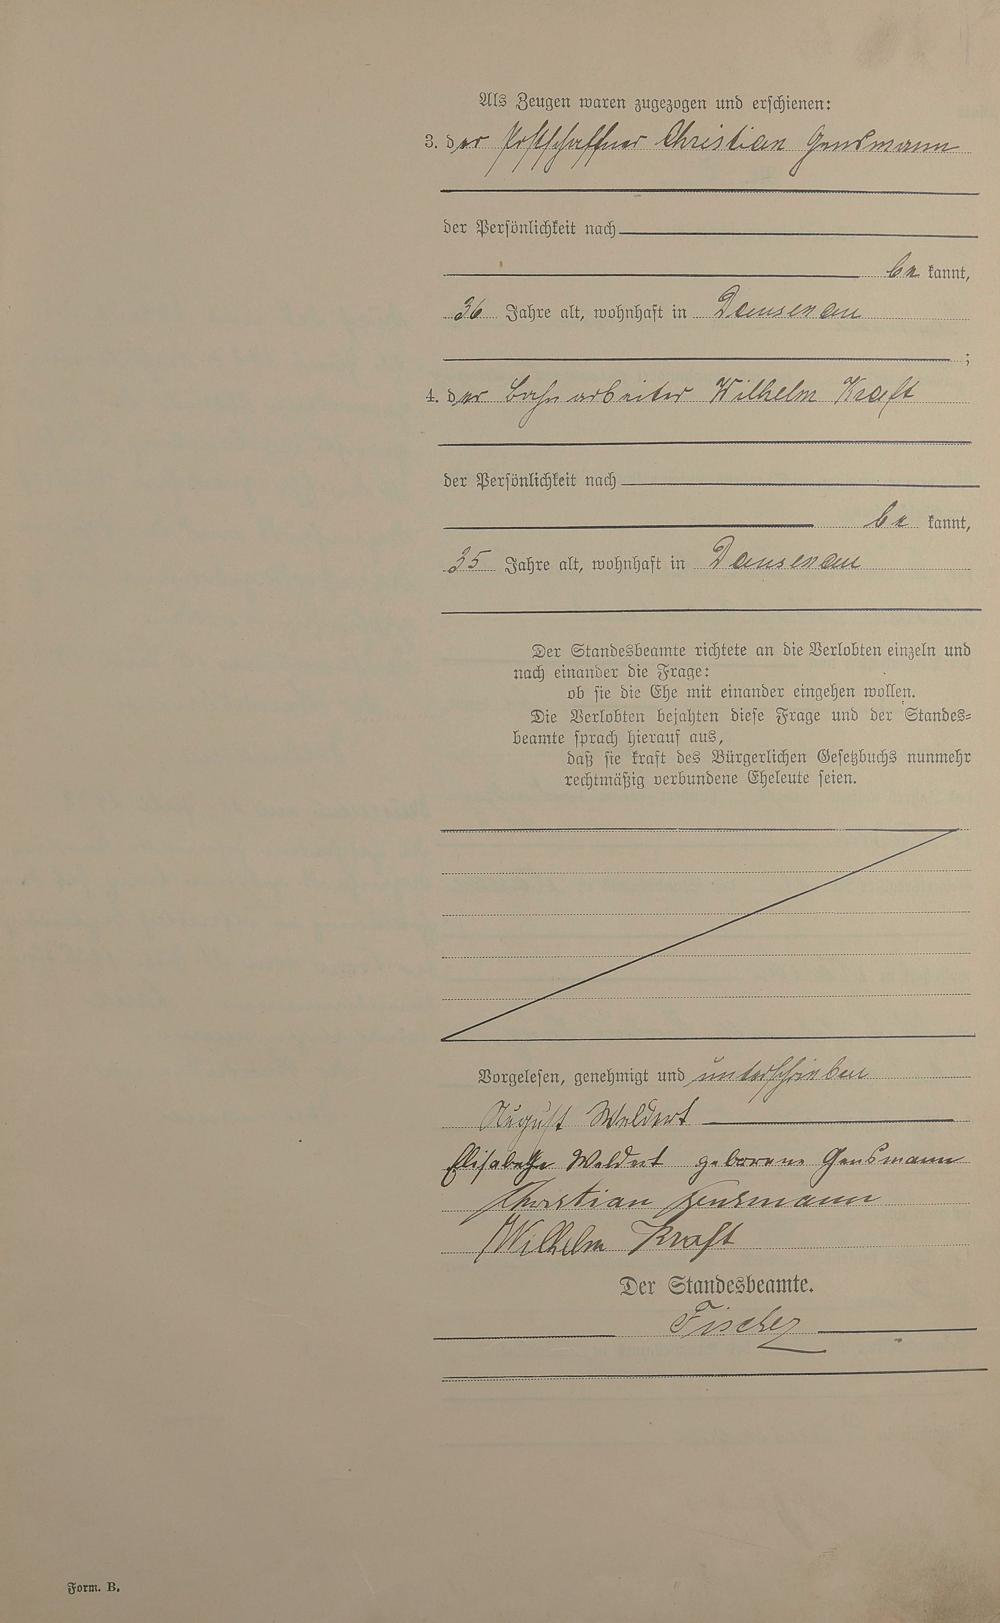 Als Zeugen waren zugezogen und erschienen:
3. der Postschaffner Christian Gensmann
der Persönlichkeit nach
be kannt,
36 Jahre alt, wohnhaft in Dausenau
;
4. der Bahnarbeiter Wilhelm Kraft
der Persönlichkeit nach
be kannt,
35 Jahre alt, wohnhaft in Dausenau
Der Standesbeamte richtete an die Verlobten einzeln und
nach einander die Frage:
ob sie die Ehe mit einander eingehen wollen.
Die Verlobten bejahten diese Frage und der Standes=
beamte sprach hierauf aus,
daß sie kraft des Bürgerlichen Gesetzbuchs nunmehr
rechtmäßig verbundene Eheleute seien.
Vorgelesen, genehmigt und unterschrieben
August Weldert
Elisabethe Weldert geborene Gensmann
Christian Gensmann
Wilhelm Kraft
Der Standesbeamte.
Fischer
Form. B.